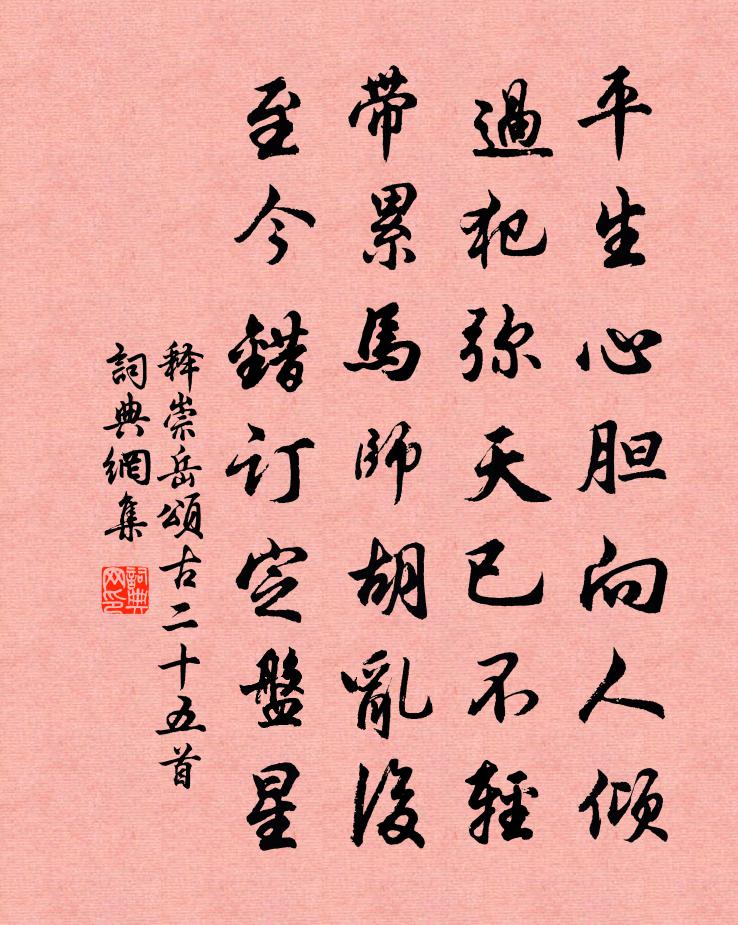 平生心胆向人倾
過犯弥天已不輕
带累馬師胡亂後
至今錯訂定盤星
释崇岳頌古二十五首
詞典網集
詞典网印